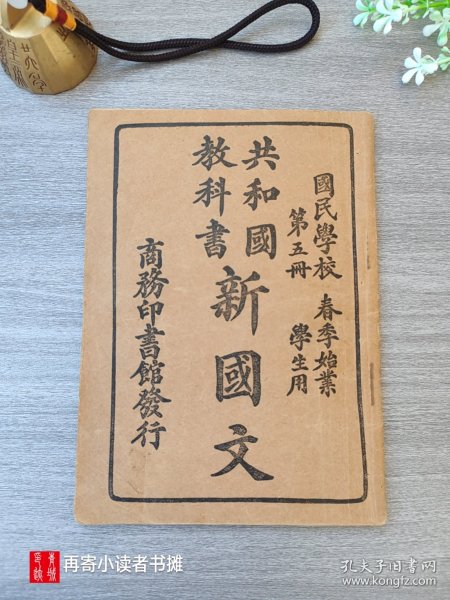 國民學校 春季始業
第五冊 學生用
共和國
教科書
新國文
商務印書館發行
再寄小读者书摊
孔夫子旧书网
www.kongfz.com